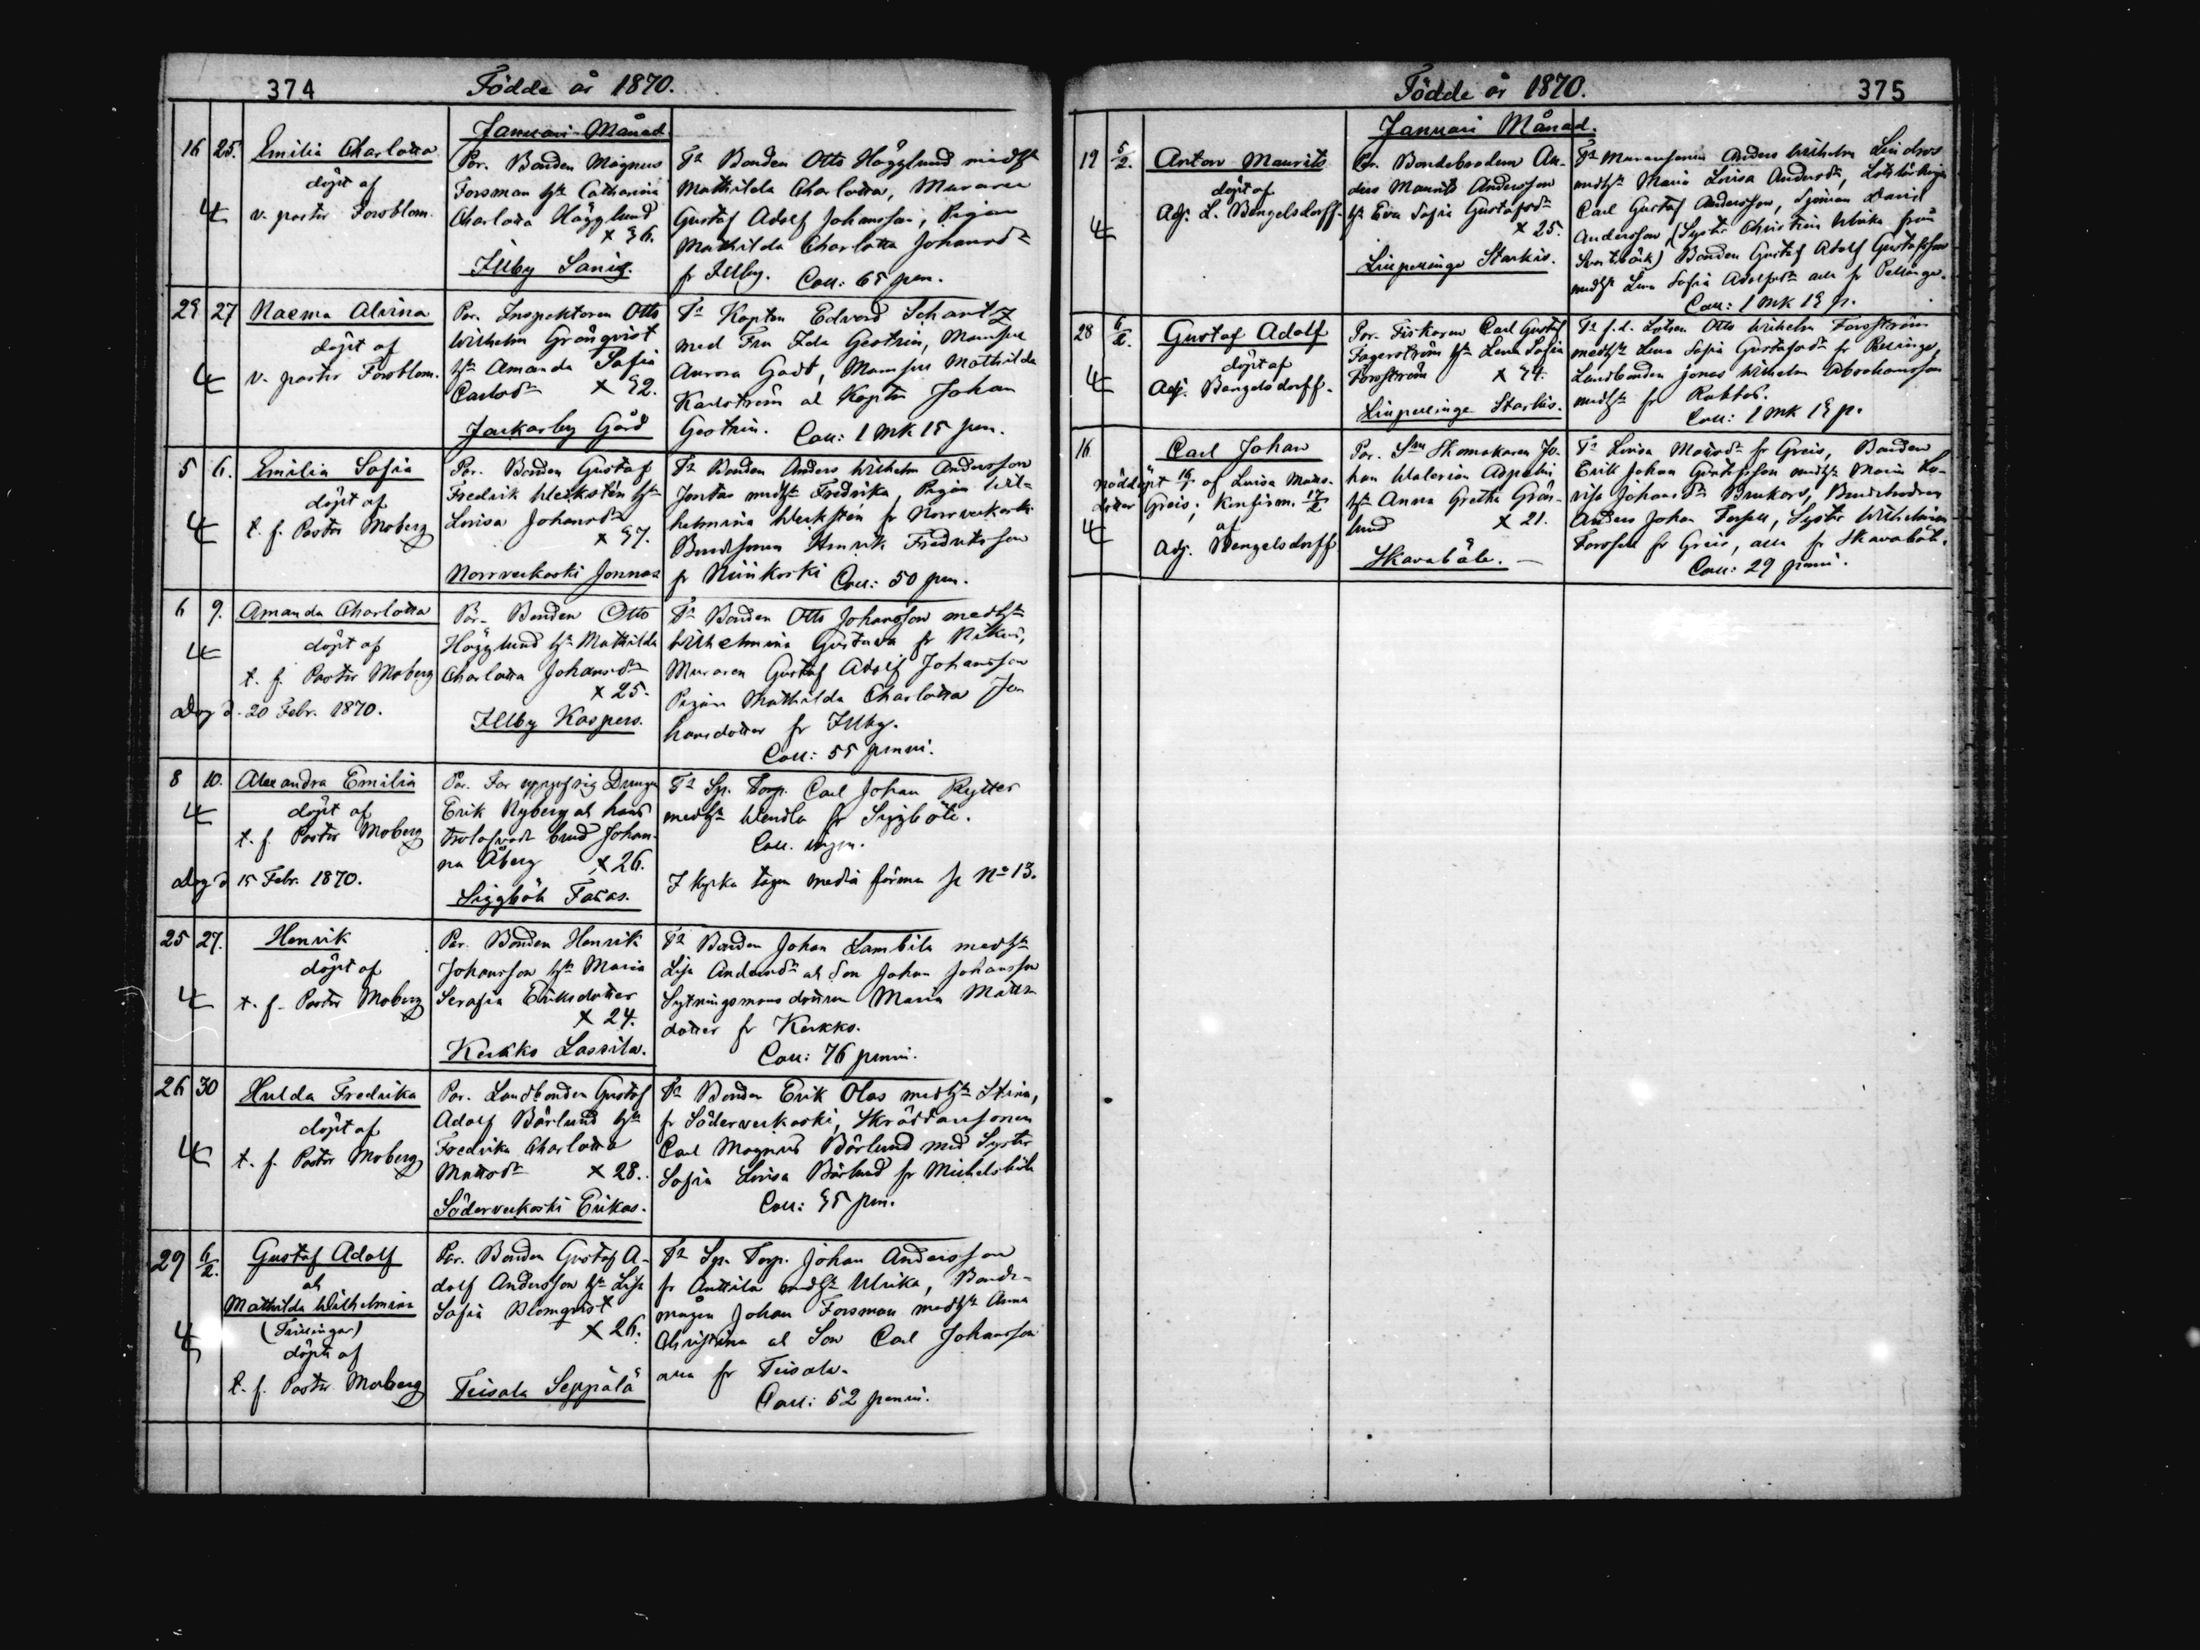 374 Födde år 1870.
Januari Månad.
16 25. Emilia Charlotta
döpt af
v. pastor Forsblom.
Por. Bonden Magnus
Forsman hst Catharina
Charlotta Hägglund
x 36.
Illby Sanis.
Ts Bonden Otto Hägglund medhst
Mathilda Charlotta, Muraren
Gustaf Adolf Johansson, Pigan
Mathilda Charlotta Johansdr
fr Illby. Coll: 65 pen.
23 27 Naema Alvina
döpt af
v. pastor Forsblom.
Por. Inspektoren Otto
Wilhelm Grönqvist
hst Amanda Sofia
Carlsdr x 32.
Jackarby Gård
Ts Kapten Edvard Schantz
med Fru Ida Gestrin, Mamsell
Aurora Gadt, Mamsell Mathilda
Karlström at Kapten Johan
Gestrin. Coll: 1 mk 15 pen.
5 6. Emilia Sofia
döpt af
t. f. Pastor Moberg
Por. Bonden Gustaf
Fredrik Weckstén hst
Lovisa Johansdr
x 37.
Norrveckoski Jonnas
Ts Bonden Anders Wilhelm Andersson
Jontas medhst Fredrika, Pigan Wil-
helmina Weckstén fr Norrveckoski
Bondsonen Henrik Fredriksson
fr Niinikoski Coll: 50 pen.
6 9. Amanda Charlotta
döpt af
t. f. Pastor Moberg
Dog d. 20 Febr. 1870.
Por. Bonden Otto
Hägglund hst Mathilda
Charlotta Johansdr
x 25.
Illby Kaspers.
Ts Bonden Otto Johansson medhst
Wilhelmina Gustava fr Nikus,
Muraren Gustaf Adolf Johansson
Pigan Mathilda Charlotta Jo-
hansdotter fr Illby.
Coll: 55 penni.
8 10. Alexandra Emilia
döpt af
t. f. Pastor Moberg
Dog d 15 Febr. 1870.
Por. Drengen
Erik Nyberg at hans
trolofvade brud Johan-
na Åberg x 26.
Siggböle Fasas.
Ts Sp. Torp. Carl Johan Rytter
medhst Wendla fr Siggböle.
Coll. ingen.
I kyrka tagen No 13.
25 27. Henrik
döpt af
t. f. Pastor Moberg
Por. Bonden Henrik
Johansson hst Maria
Serafia Eriksdotter
x 24.
Kerkko Lassila.
Ts Bonden Johan Lambila medhst
Lisa Andersdr at Son Johan Johansson
Sytningsmans dottren Maria Matts-
dotter fr Kerkko.
Coll: 76 penni.
26 30 Hulda Fredrika
döpt af
t. f. Pastor Moberg
Por. Landbonden Gustaf
Adolf Bärlund hst
Fredrika Charlotta
Mattsdr x 28.
Söderveckoski Erikas.
Ts Bonden Erik Olas medhst Stina,
fr Söderveckoski, Skräddaresonen
Carl Magnus Bärlund med Syster
Sofia Lovisa Bärlund fr Mickelsböle
Coll: 35 pen.
29 6/2. Gustaf Adolf
at
Mathilda Wilhelmina
(Tvillingar)
döpte af
t. f. Pastor Moberg
Por. Bonden Gustaf A-
dolf Andersson hst Lisa
Sofia Blomqvist
x 26.
Teisala Seppälä
Ts Sp. Torp. Johan Andersson
fr Anttila medhst Ulrika, Bonde-
mågen Johan Forsman medhst Anna
Christina at Son Carl Johansson
alla fr Teisala.
Coll: 52 penni.
Födde år 1870. 375
Januari Månad.
12 5/2. Anton Maurits
döpt af
Adj. L. Bengelsdorff.
Por. Bondebrodren An-
ders Maurits Andersson
hst Eva Sofia Gustafsdr
x 25.
Lillpellinge Starkis.
Ts Muraresonen Anders Wilhelm Lindroos
medhst Maria Lovisa Andersdr, Lotslärlingen
Carl Gustaf Andersson, Sjöman David
Andersson, (Syster Christina Ulrika från
Svartbäck) Bonden Gustaf Adolf Gustafsson
medhst Lena Sofia Adolfsdr alla fr Pellinge.
Coll: 1 mk 13 p.
28 6/2. Gustaf Adolf
döpt af
Adj. Bengelsdorff.
Por. Fiskaren Carl Gustaf
Fagerström hst Lena Sofia
Forsström x 34.
Lillpellinge Starkis.
Ts f.d. Lotsen Otto Wilhelm Forsström
medhst Lena Sofia Gustafsdr fr Pellinge,
Landbonden Jonas Wilhelm Abrahamsson
medhst fr Rabbas.
Coll: 1 mk 13 p.
16 Carl Johan
nöddöpt 16/1 af Lovisa Matts-
dotter Greis; Konfirm. 17/2
af
Adj. Bengelsdorff
Por. Skomakaren Jo-
han Walerian Aspelin
hst Anna Gretha Grön-
lund x 21.
Skavaböle.
Ts Lovisa Mattsdr fr Greis, Bonden
Erik Johan Gustafsson medhst Maria Lo-
visa Johansdr Brukars, Bondebrodren
Anders Johan Forsell, Syster Wilhelmina
Forsell fr Greis, alla fr Skavaböle.
Coll: 29 penni.